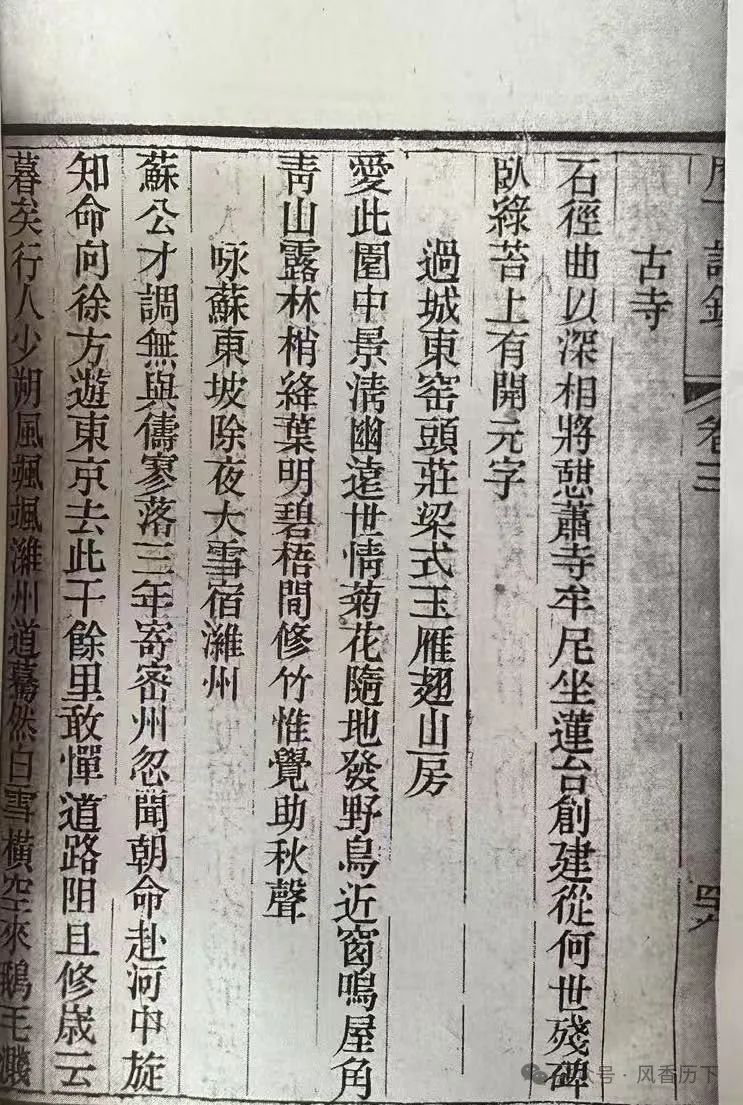 卷三
古寺
石徑曲以深相將憇蕭寺牟尼坐蓮台創建從何世殘碑
臥綠苔上有開元字
過城東窑頭莊梁式玉雁翅山房
愛此園中景清幽遠世情菊花隨地發野鳥近窗鳴屋角
青山露林梢絳葉明碧梧間修竹惟覺助秋聲
咏蘇東坡除夜大雪宿濰州
蘇公才調無與儔寥落三年寄密州忽聞朝命赴河中旋
知命向徐方遊東京去此千餘里敢憚道路阻且修歲云
暮矣行人少朔風颯颯濰州道驀然白雪橫空來鵝毛濺
公众号 · 风香历下